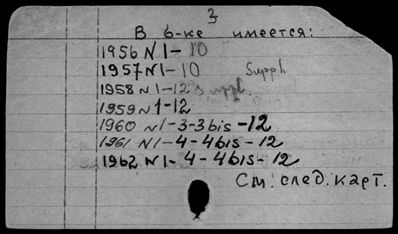 3
В б-ке имеется:
1956 N 1-10
1957 N 1-10 Suppl
1958 N 1-12 suppl.
1959 N 1-12
1960 N 1-3-3 bis-12
1961 N 1-4-4 bis-12
1962 N 1-4-4 bis-12
См. след. карт.